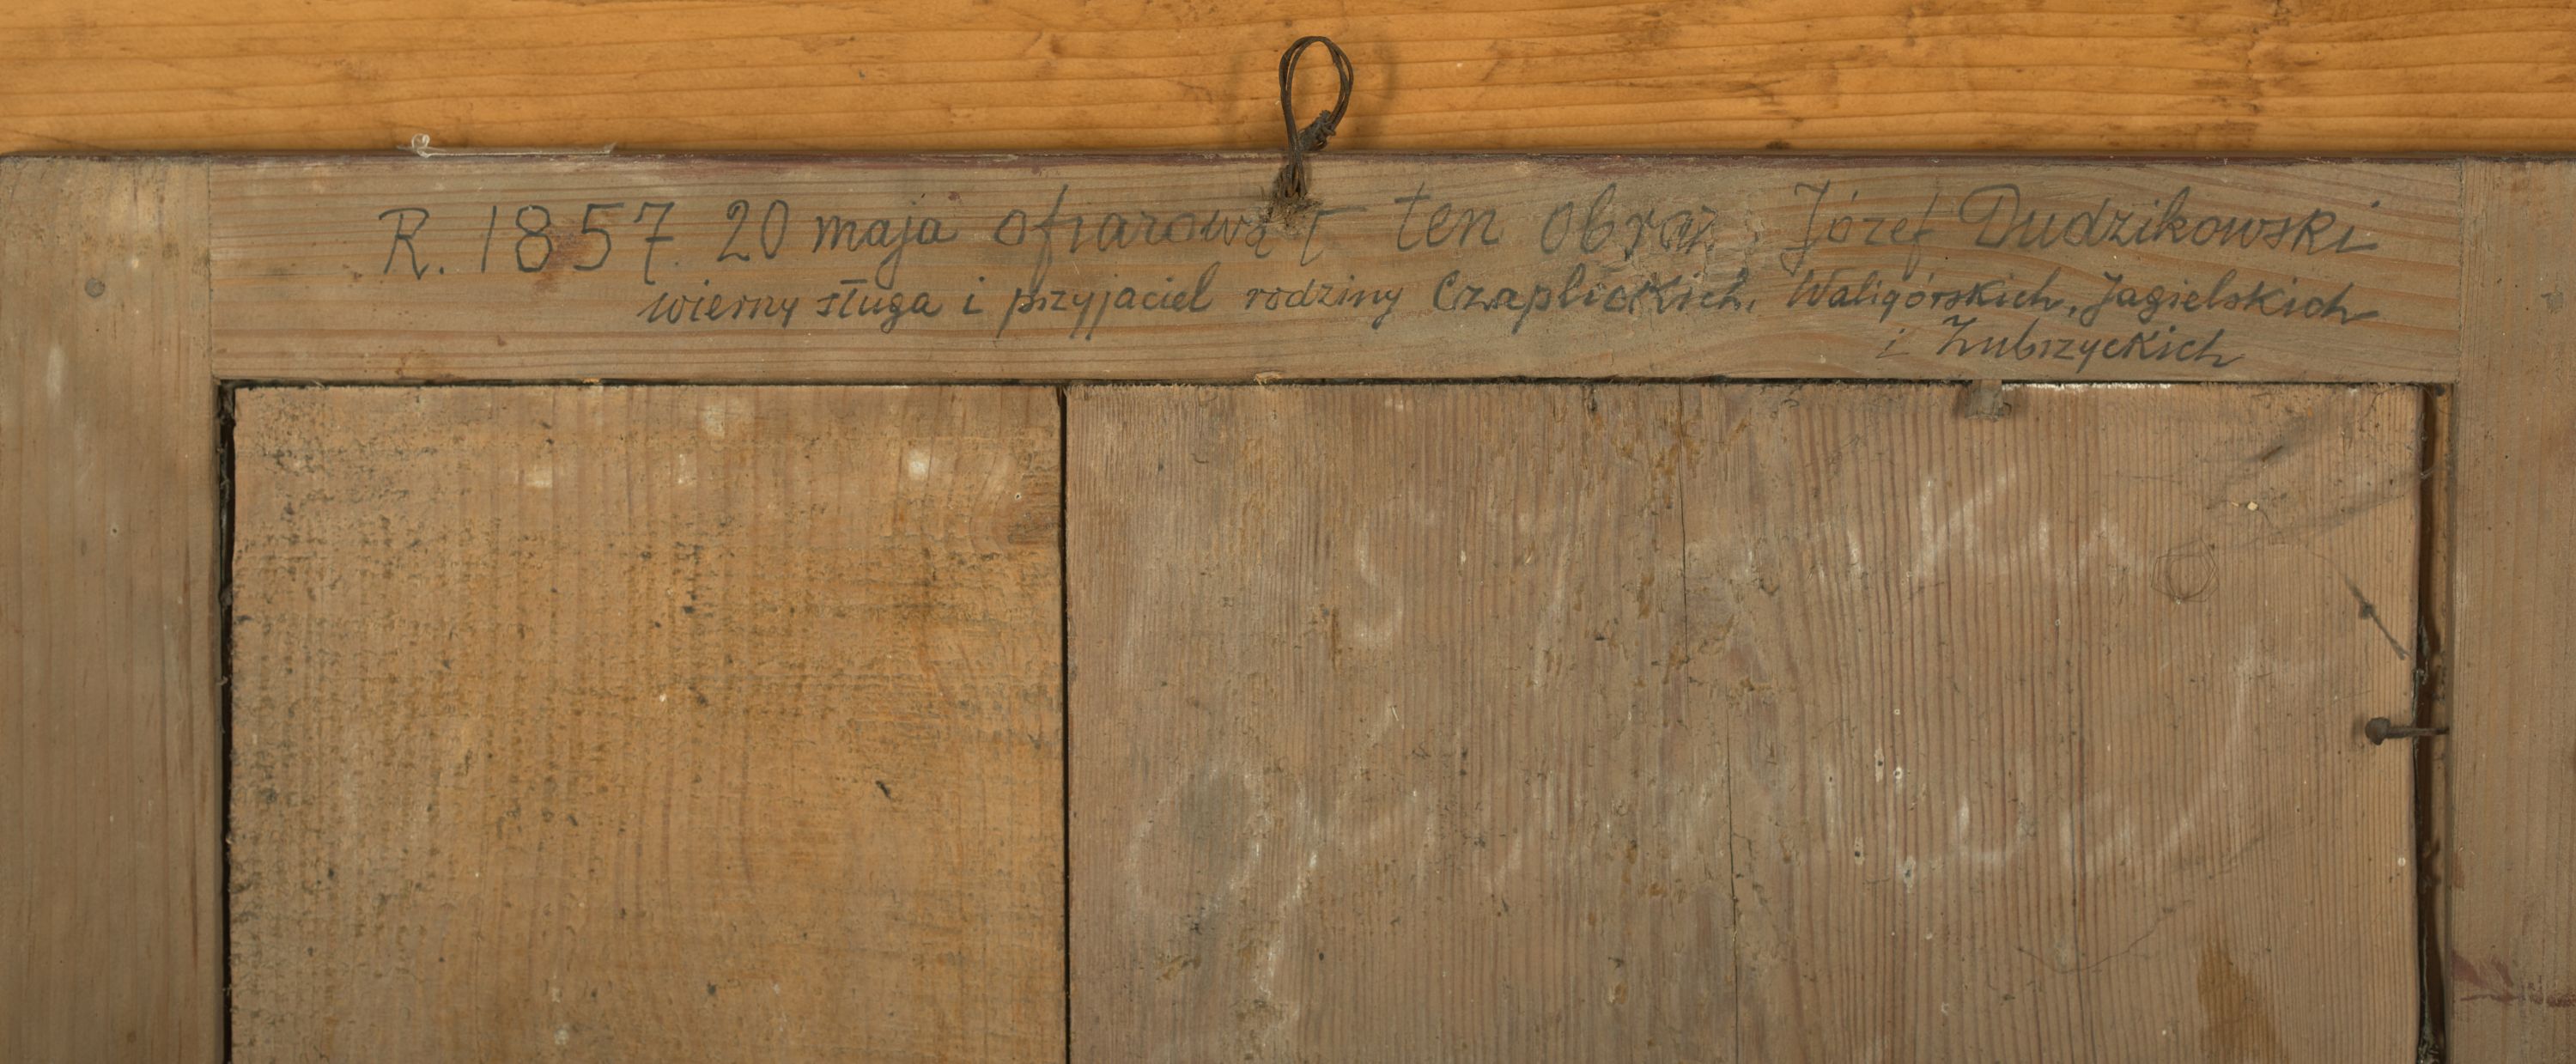 R. 1857. 20 maja ofiarował ten obraz Józef Dudzikowski
wierny sługa i przyjaciel rodziny Czaplickich, Waligórskich, Jagielskich
i Zubrzyckich